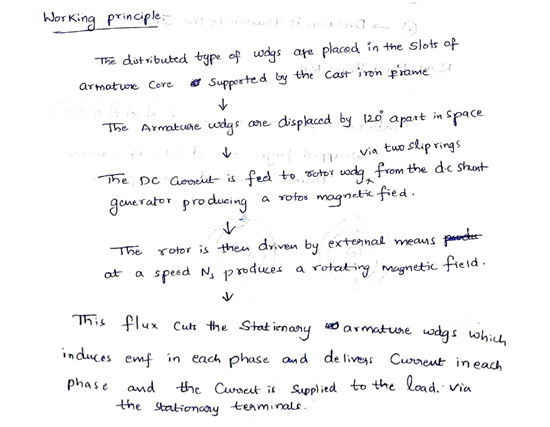 Working principle:
The distributed type of wdgs are placed in the slots of
armature core supported by the cast iron frame
↓
The Armature wdgs are displaced by 120° apart in space
↓
via two slip rings
The DC Current is fed to rotor wdg ^ from the d.c shunt
generator producing a rotor magnetic fied.
↓
The rotor is then driven by external means
at a speed Ns produces a rotating magnetic field.
↓
This flux cuts the Stationary armature wdgs which
induces emf in each phase and delivers Current in each
phase and the Current is Supplied to the load. via
the stationary terminals.